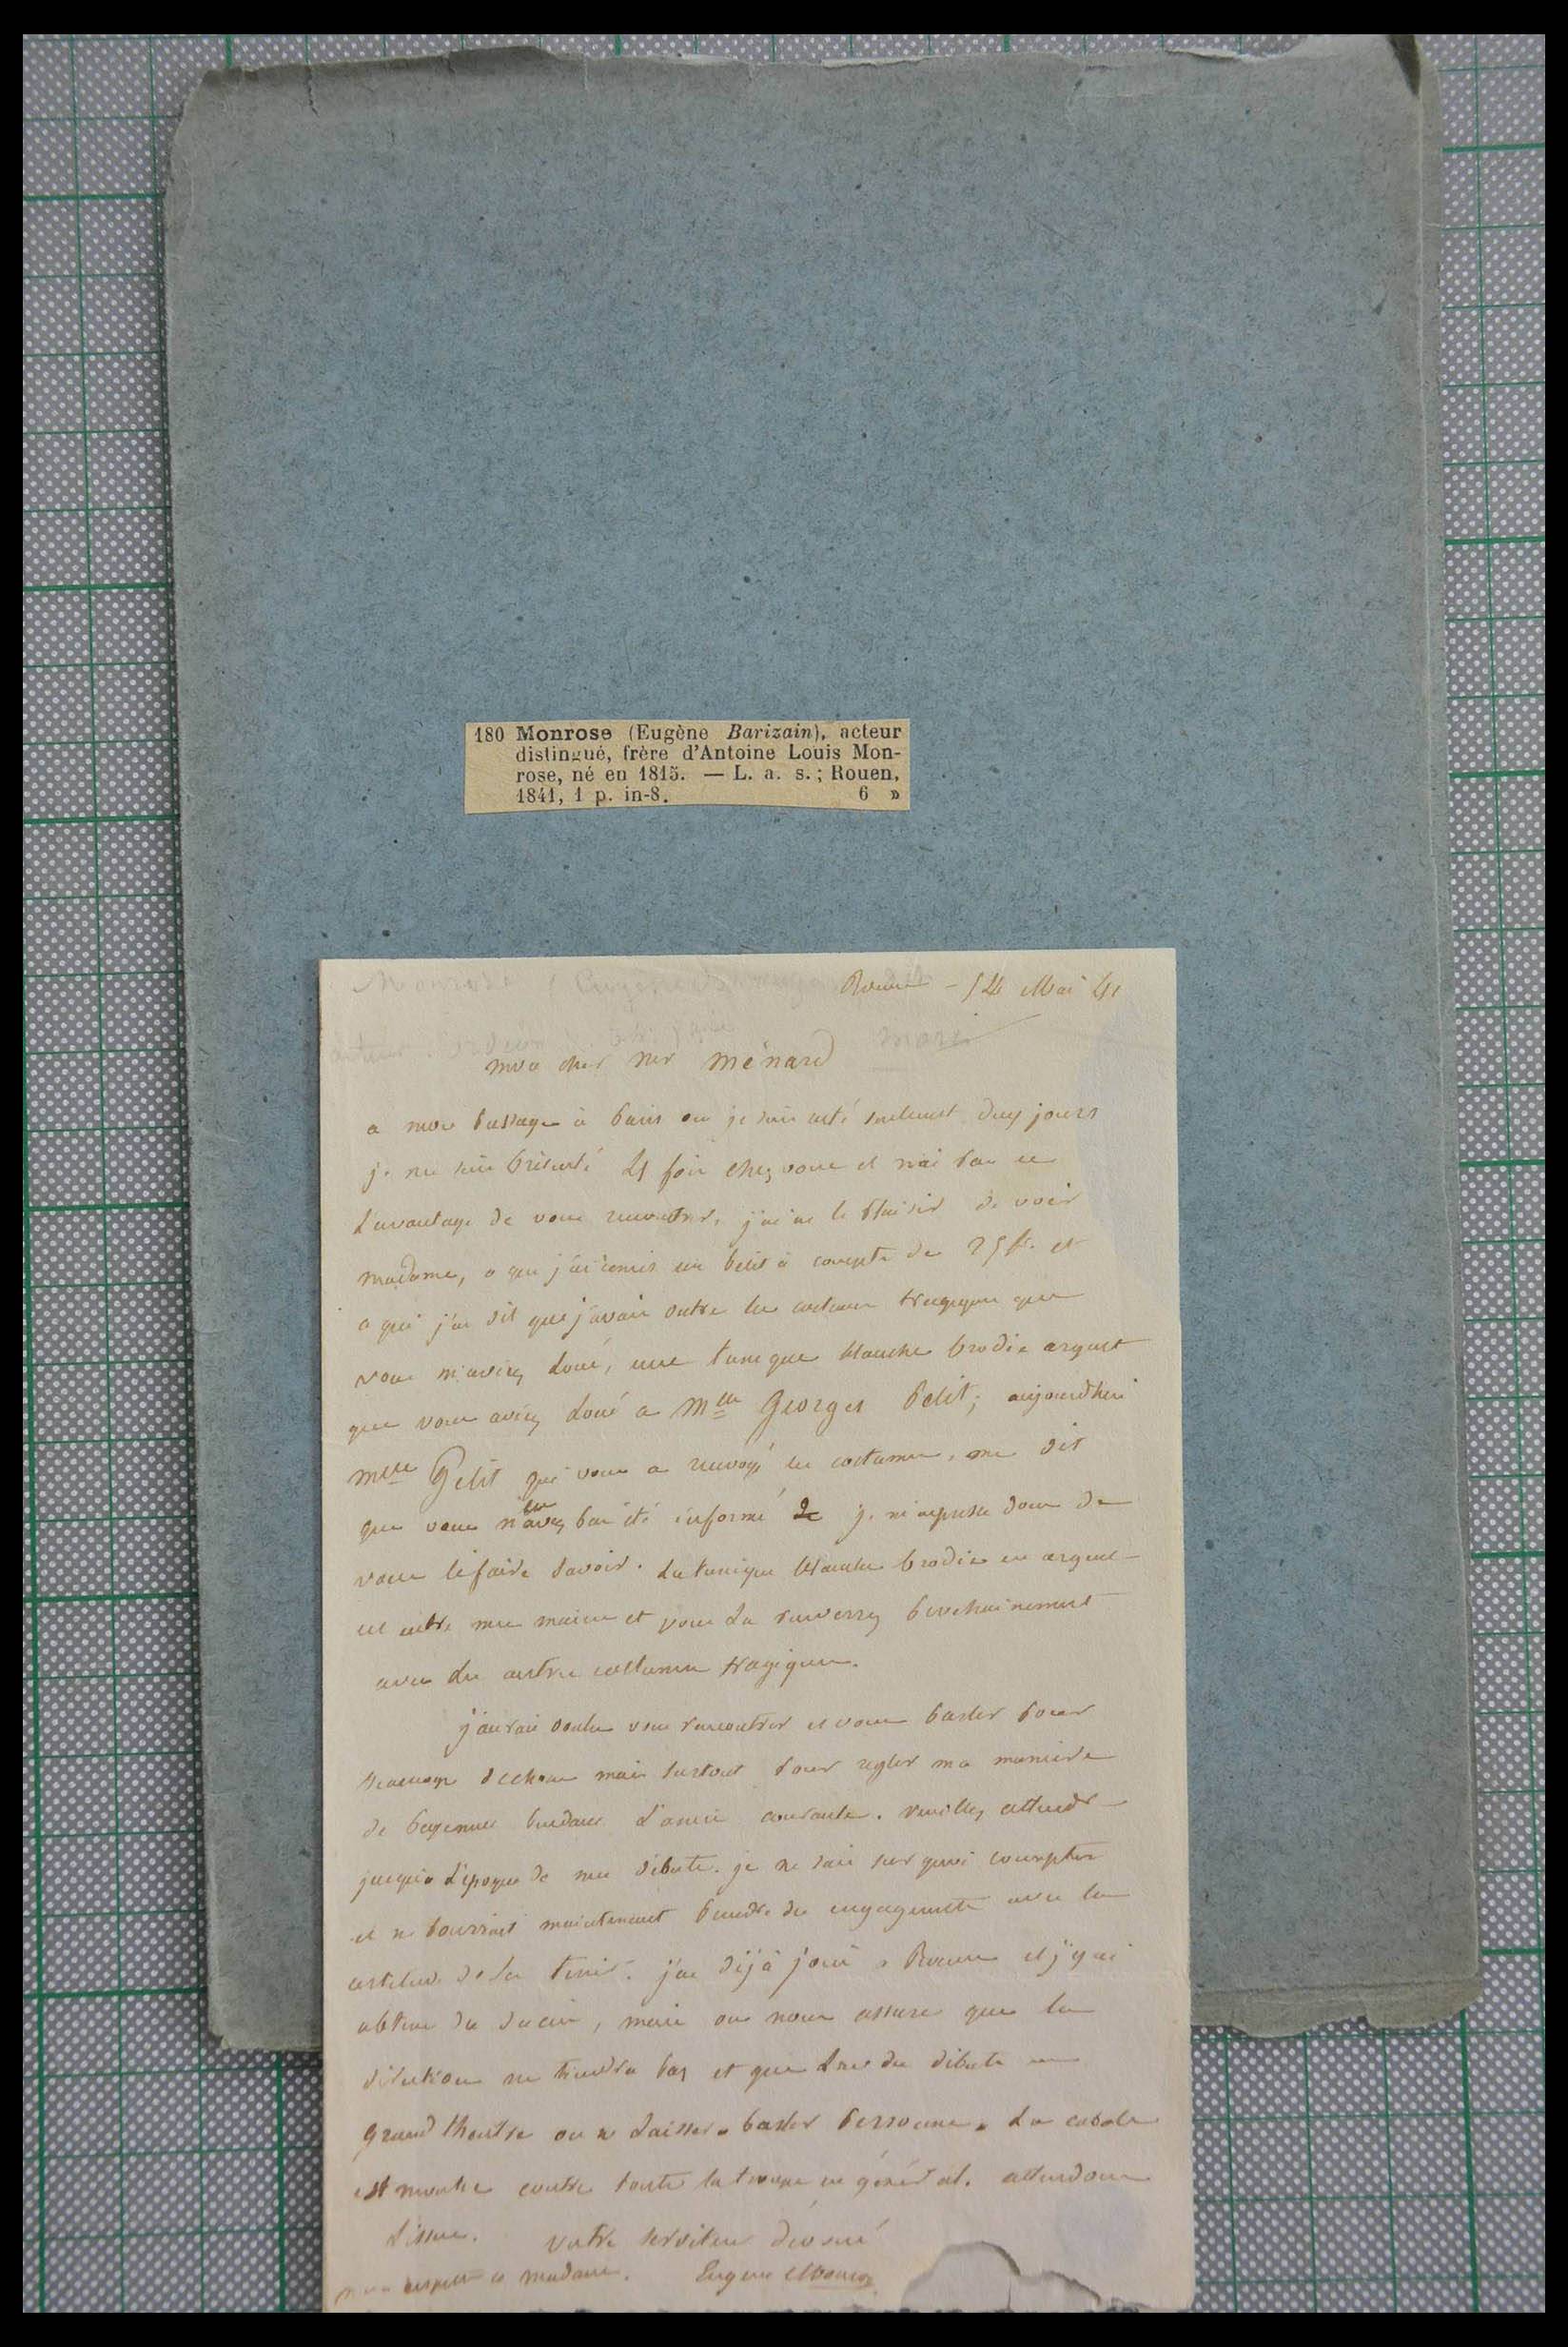 180 Monrose (Eugène Barizain), acteur
distingué, frère d'Antoine Louis Mon-
rose, né en 1815. — L. a. s.; Rouen,
1841, 1 p. in-8. 6 »
Monrose (Eugène
Rouen - 14 Mai 41
mon cher Mr Ménard
a mon passage à Paris ou je suis resté seulement deux jours
je me suis présenté 21 fois chez vous et n'ai pas eu
l'avantage de vous rencontrer, j'ai eu le plaisir de voir
madame, a qui j'ai remis un petit à compte de 25 f. et
a qui j'ai dit que j'avais outre les costumes tragiques que
vous m'aviez loué, une tunique blanche brodée argent
que vous aviez loué a Mlle Georges Petit; aujourd'hui
Mlle Petit qui vous a renvoyé ses costumes, me dit
que vous n'en avez pas été informé je m'empresse donc de
vous le faire savoir. La tunique blanche brodée en argent
est entre mes mains et vous la recevrez prochainement
avec les autres costumes tragiques.
j'aurais voulu vous rencontrer et vous parler pour
mais surtout pour regler ma maniere
de payement pendant l'année courante. veuillez attendre
jusqu'a l'époque de mes débuts. je ne sais sur quoi compter
et ne pourrais maintenant prendre des engagements avec la
certitude de les tenir. j'ai déjà joué a Rouen et j'y ai
obtenu du succès, mais on nous assure que la
direction ne tiendra pas et que lors des débuts au
grand theatre on ne laissera parler personne. La cabale
est montée contre toute la troupe en général. attendons
l'issue. votre serviteur dévoué
mes respects a madame. Eugène Monrose